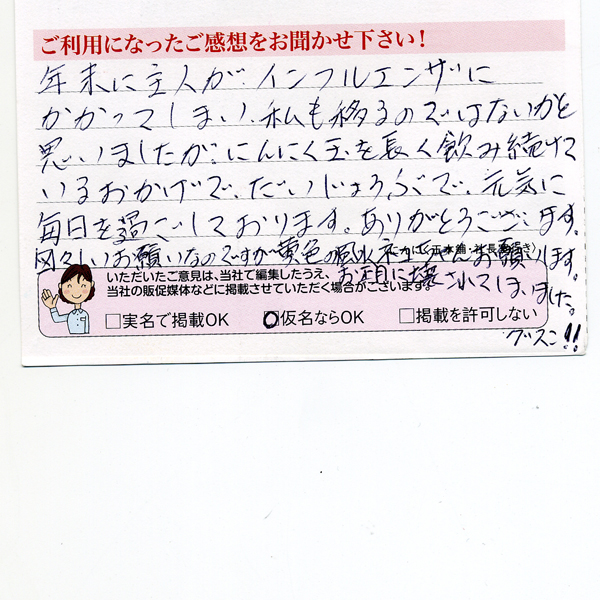 ご利用になったご感想をお聞かせ下さい！
年末に主人が、インフルエンザに
かかってしまい、私も移るのではないかと
思いましたが、にんにく玉を長く飲み続けて
いるおかげで、だいじょうぶで、元気に
毎日を過ごしております。ありがとうございます。
図々しいお願いなのですが黄色の風水ネコちゃんお願いします。
お正月に壊されてしまいました。
グスン!!
いただいたご意見は、当社で編集したうえ、
当社の販促媒体などに掲載させていただく場合がございます。
□実名で掲載OK □仮名ならOK □掲載を許可しない